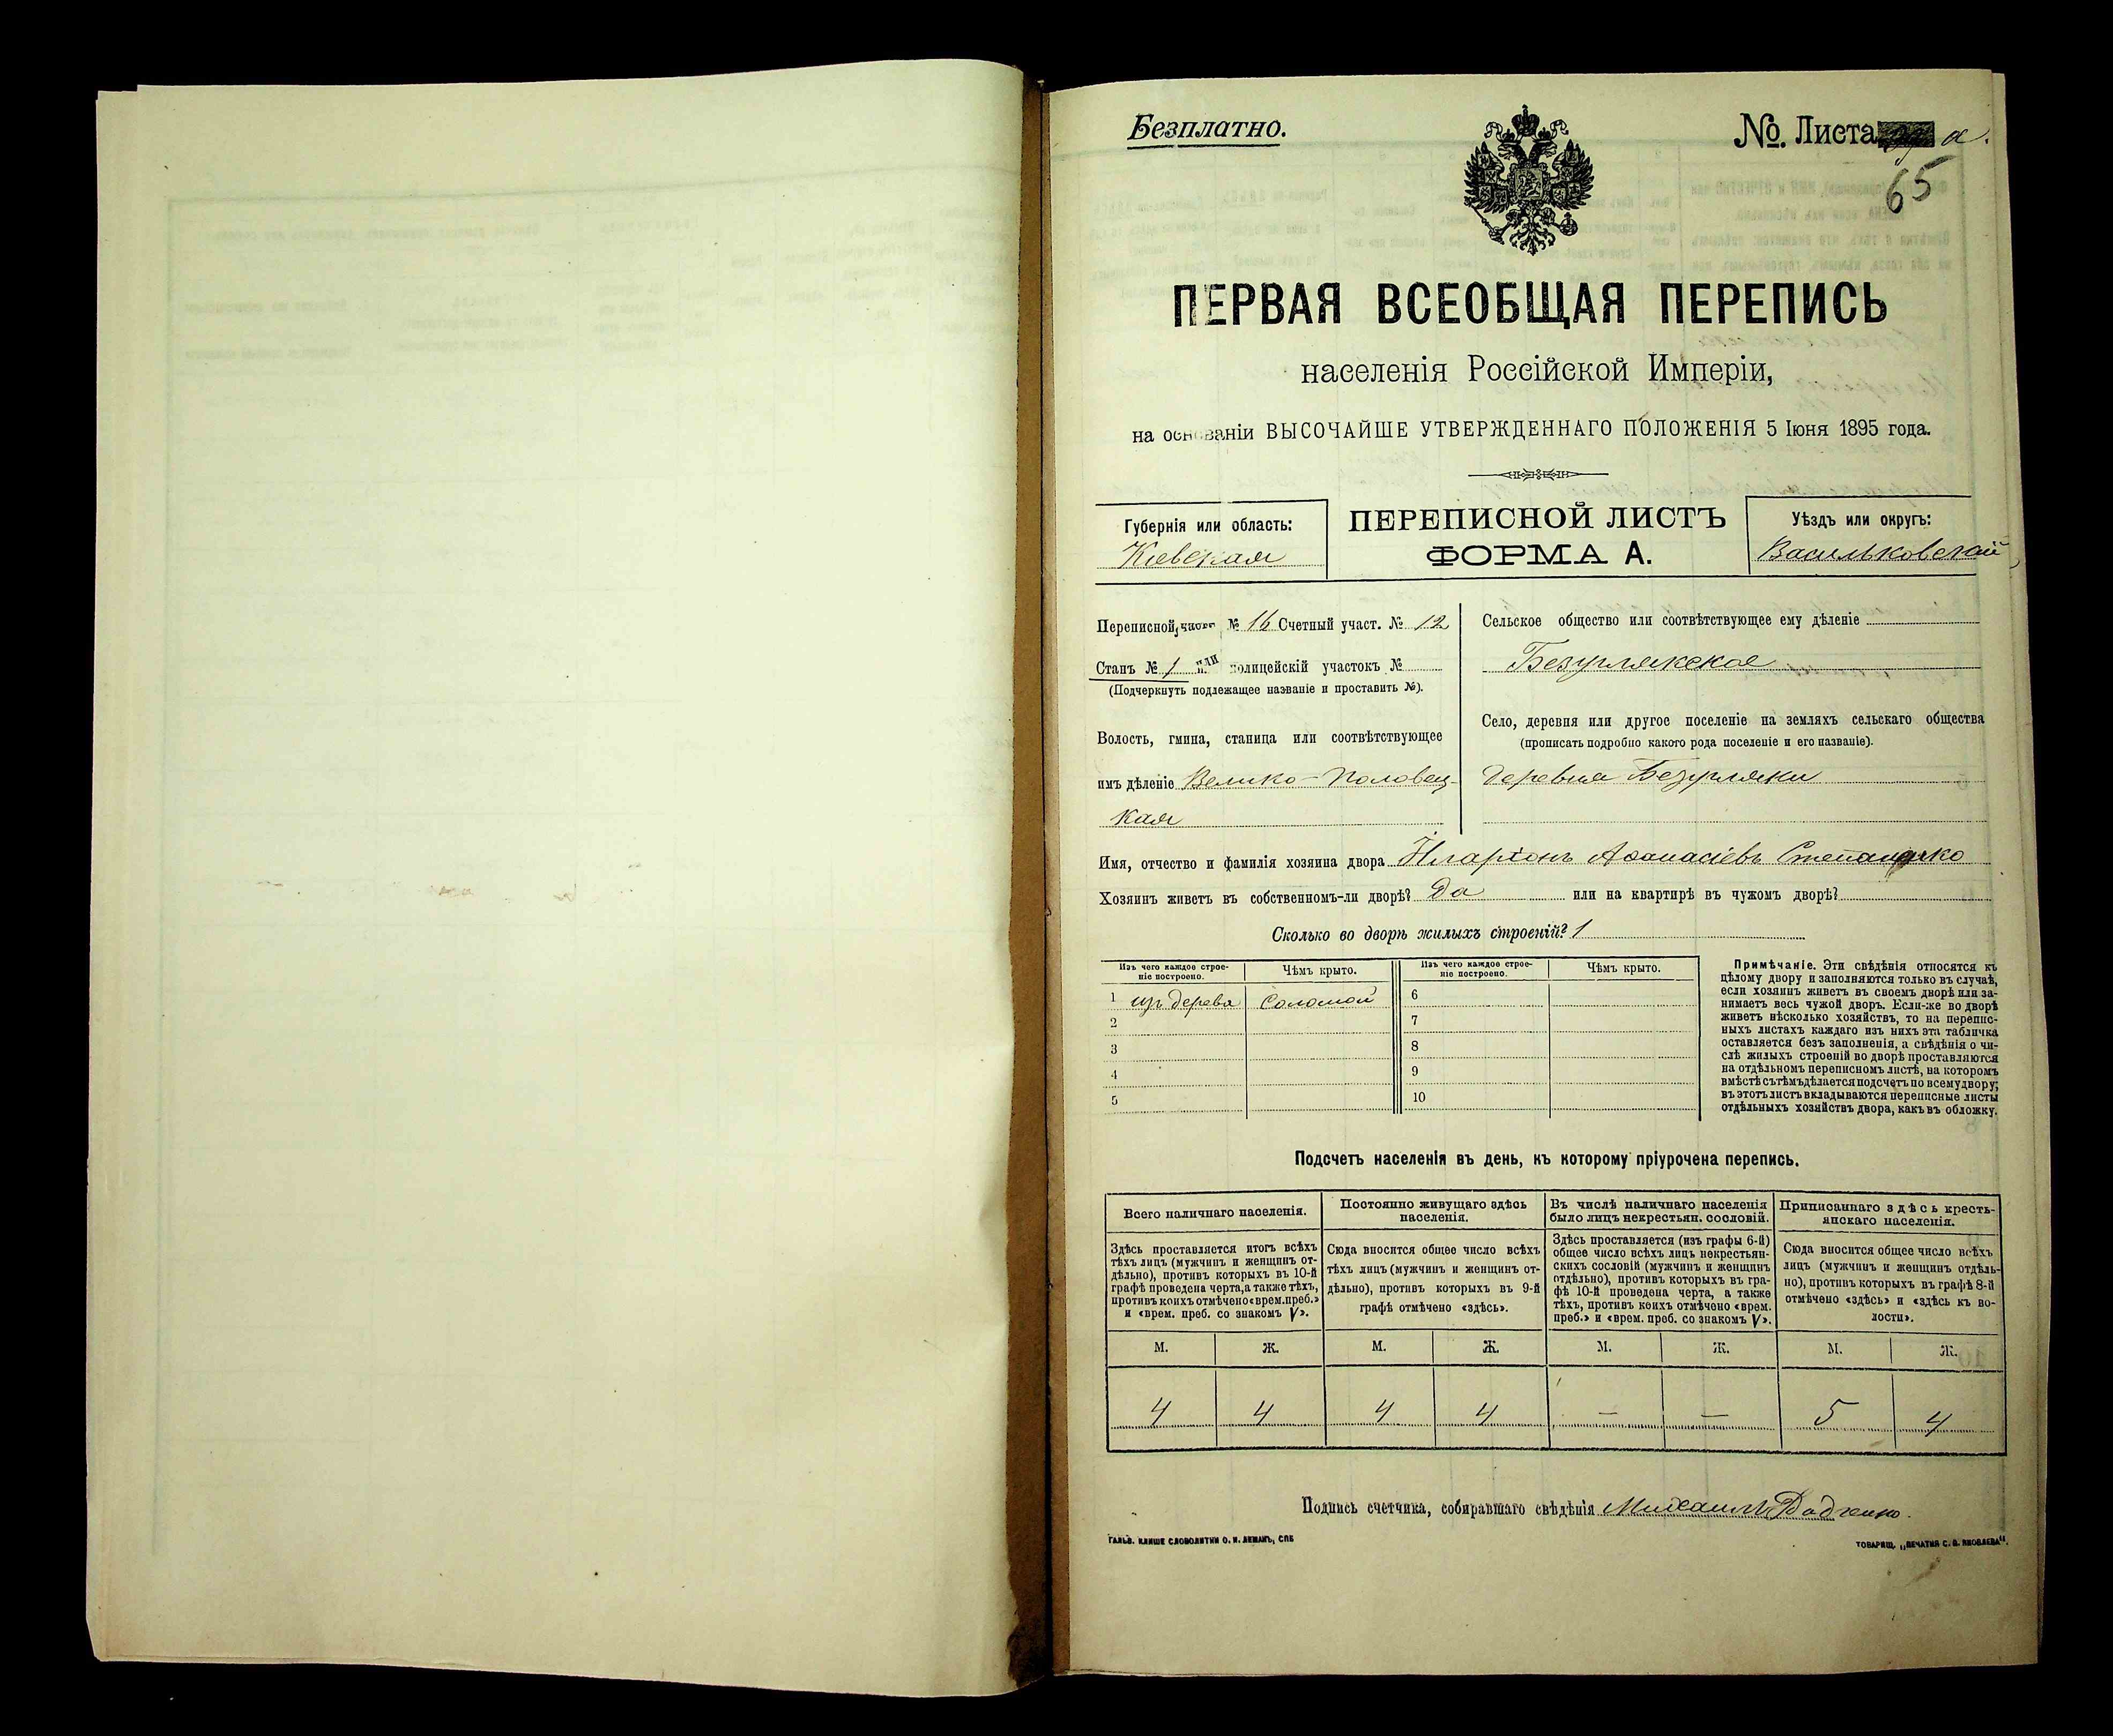 Безплатно.
№ Листа а.
65
ПЕРВАЯ ВСЕОБЩАЯ ПЕРЕПИСЬ
населенія Россійской Имперіи,
на основаніи ВЫСОЧАЙШЕ УТВЕРЖДЕННАГО ПОЛОЖЕНІЯ 5 Іюня 1895 года.
Губернія или область:
Кіевская
ПЕРЕПИСНОЙ ЛИСТЪ
ФОРМА А.
Уѣздъ или округъ:
Васильковскій
Переписной участ. № 16 Счетный участ. № 12
Станъ № 1 или полицейскій участокъ №
(Подчеркнуть подлежащее названіе и проставить №).
Волость, гмина, станица или соотвѣтствующее
имъ дѣленіе Велико-Половец-
кая
Сельское общество или соотвѣтствующее ему дѣленіе
Безуглякское
Село, деревня или другое поселеніе на земляхъ сельскаго общества
(прописать подробно какого рода поселеніе и его названіе).
деревня Безугляки
Имя, отчество и фамилія хозяина двора Иларіонъ Аѳанасіевъ
Хозяинъ живетъ въ собственномъ-ли дворѣ? Да или на квартирѣ въ чужомъ дворѣ?
Сколько во дворѣ жилыхъ строеній? 1
Изъ чего каждое строе-
ніе построено.
Чѣмъ крыто.
Изъ чего каждое строе-
ніе построено.
Чѣмъ крыто.
1 изъ дерева Соломой 6
2 7
3 8
4 9
5 10
Примѣчаніе. Эти свѣдѣнія относятся къ
цѣлому двору и заполняются только въ случаѣ,
если хозяинъ живетъ въ своемъ дворѣ или за-
нимаетъ весь чужой дворъ. Если-же во дворѣ
живетъ нѣсколько хозяйствъ, то на перепис-
ныхъ листахъ каждаго изъ нихъ эта табличка
оставляется безъ заполненія, а свѣдѣнія о чи-
слѣ жилыхъ строеній во дворѣ проставляются
на отдѣльномъ переписномъ листѣ, на которомъ
вмѣстѣ съ тѣмъ дѣлается подсчетъ по всему двору;
въ этотъ листъ вкладываются переписные листы
отдѣльныхъ хозяйствъ двора, какъ въ обложку.
Подсчетъ населенія въ день, къ которому пріурочена перепись.
Всего наличнаго населенія.
Здѣсь проставляется итогъ всѣхъ
тѣхъ лицъ (мужчинъ и женщинъ от-
дѣльно), противъ которыхъ въ 10-й
графѣ проведена черта, а также тѣхъ,
противъ коихъ отмѣчено «врем. преб.»
и «врем. преб. со знакомъ V».
Постоянно живущаго здѣсь
населенія.
Сюда вносится общее число всѣхъ
тѣхъ лицъ (мужчинъ и женщинъ от-
дѣльно), противъ которыхъ въ 9-й
графѣ отмѣчено «здѣсь».
Въ числѣ наличнаго населенія
было лицъ некрестьян. сословій.
Здѣсь проставляется (изъ графы 6-й)
общее число всѣхъ лицъ некрестьян-
скихъ сословій (мужчинъ и женщинъ
отдѣльно), противъ которыхъ въ гра-
фѣ 10-й проведена черта, а также
тѣхъ, противъ коихъ отмѣчено «врем.
преб.» и «врем. преб. со знакомъ V».
Приписаннаго здѣсь кресть-
янскаго населенія.
Сюда вносится общее число всѣхъ
лицъ (мужчинъ и женщинъ отдѣль-
но), противъ которыхъ въ графѣ 8-й
отмѣчено «здѣсь» и «здѣсь къ во-
лости».
М. Ж. М. Ж. М. Ж. М. Ж.
4 4 4 4 — — 5 4
Подпись счетчика, собиравшаго свѣдѣнія Михаилъ
ГАЛЬВ. КЛИШЕ СЛОВОЛИТНИ О. И. ЛЕМАНЪ, СПБ
ТОВАРИЩ. „ПЕЧАТНЯ С. П. ЯКОВЛЕВА“.